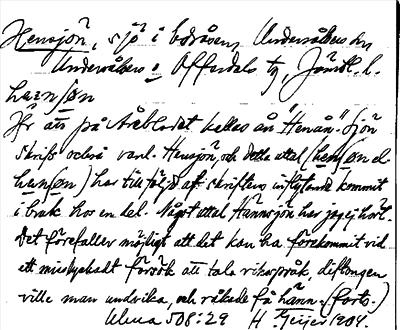 Hensjön, sjö i bolåsen, Undersåkers sn
Undersåkers o Offerdals tg, Jämtl. l.
hæn ʃøn
Jfr att på Årebladet kallas ån "Henån". Sjön
skrifs också vanl. Hensjön, och detta uttal (hen ʃøn el.
hen ʃøn) har till följd af skriftens inflytande kommit
i bruk hos en del. Något uttal Hännsjön har jag ej hört.
Det förefaller möjligt att det kan ha förekommit vid
ett misslyckadt försök att tala riksspråk, diftongen
ville man undvika, och råkade få hänn- (forts.)
Ulma 508:29 H Geijer 1904.